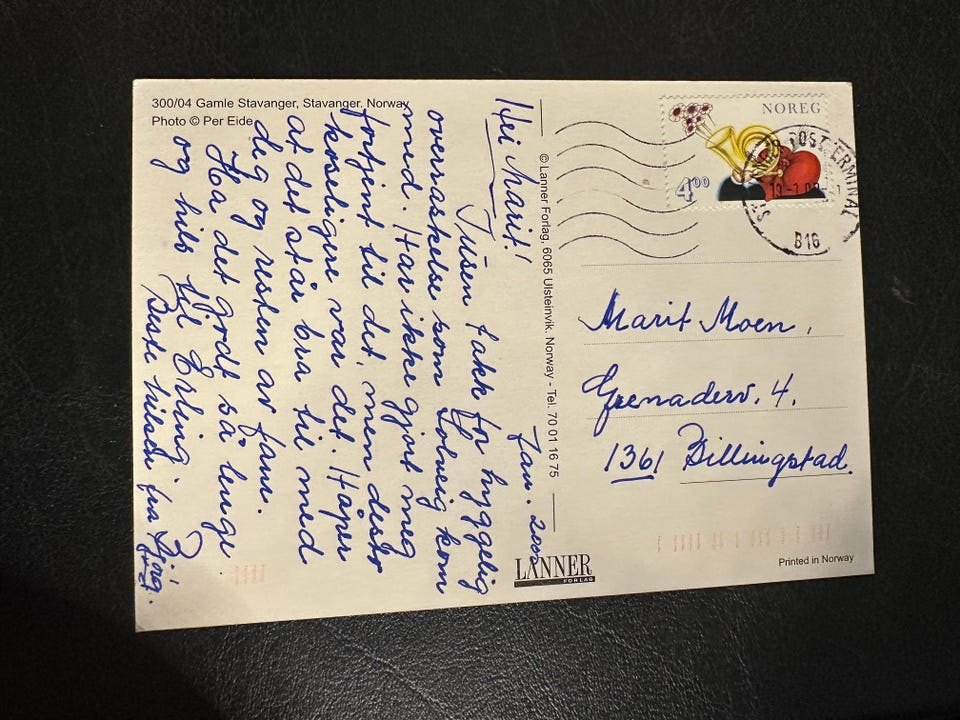 300/04 Gamle Stavanger, Stavanger. Norway
Photo © Per Eide
Jan. 2000
Hei Marit!
Tusen takk for hyggelig
overraskelse som Solveig kom
med. Har ikke gjort meg
fortjent til det, men desto
koseligere var det. Håper
at det står bra til med
deg og resten av fam.
Ha det godt så lenge
og hils til Erling
Beste hilsen fra
© Lanner Forlag, 6065 Ulsteinvik. Norway - Tel. 70 01 16 75
LANNER
FORLAG
NOREG
4.00
POSTTERMINAL
B16
Marit Moen,
Grenaderv. 4.
1361 Billingstad.
Printed in Norway